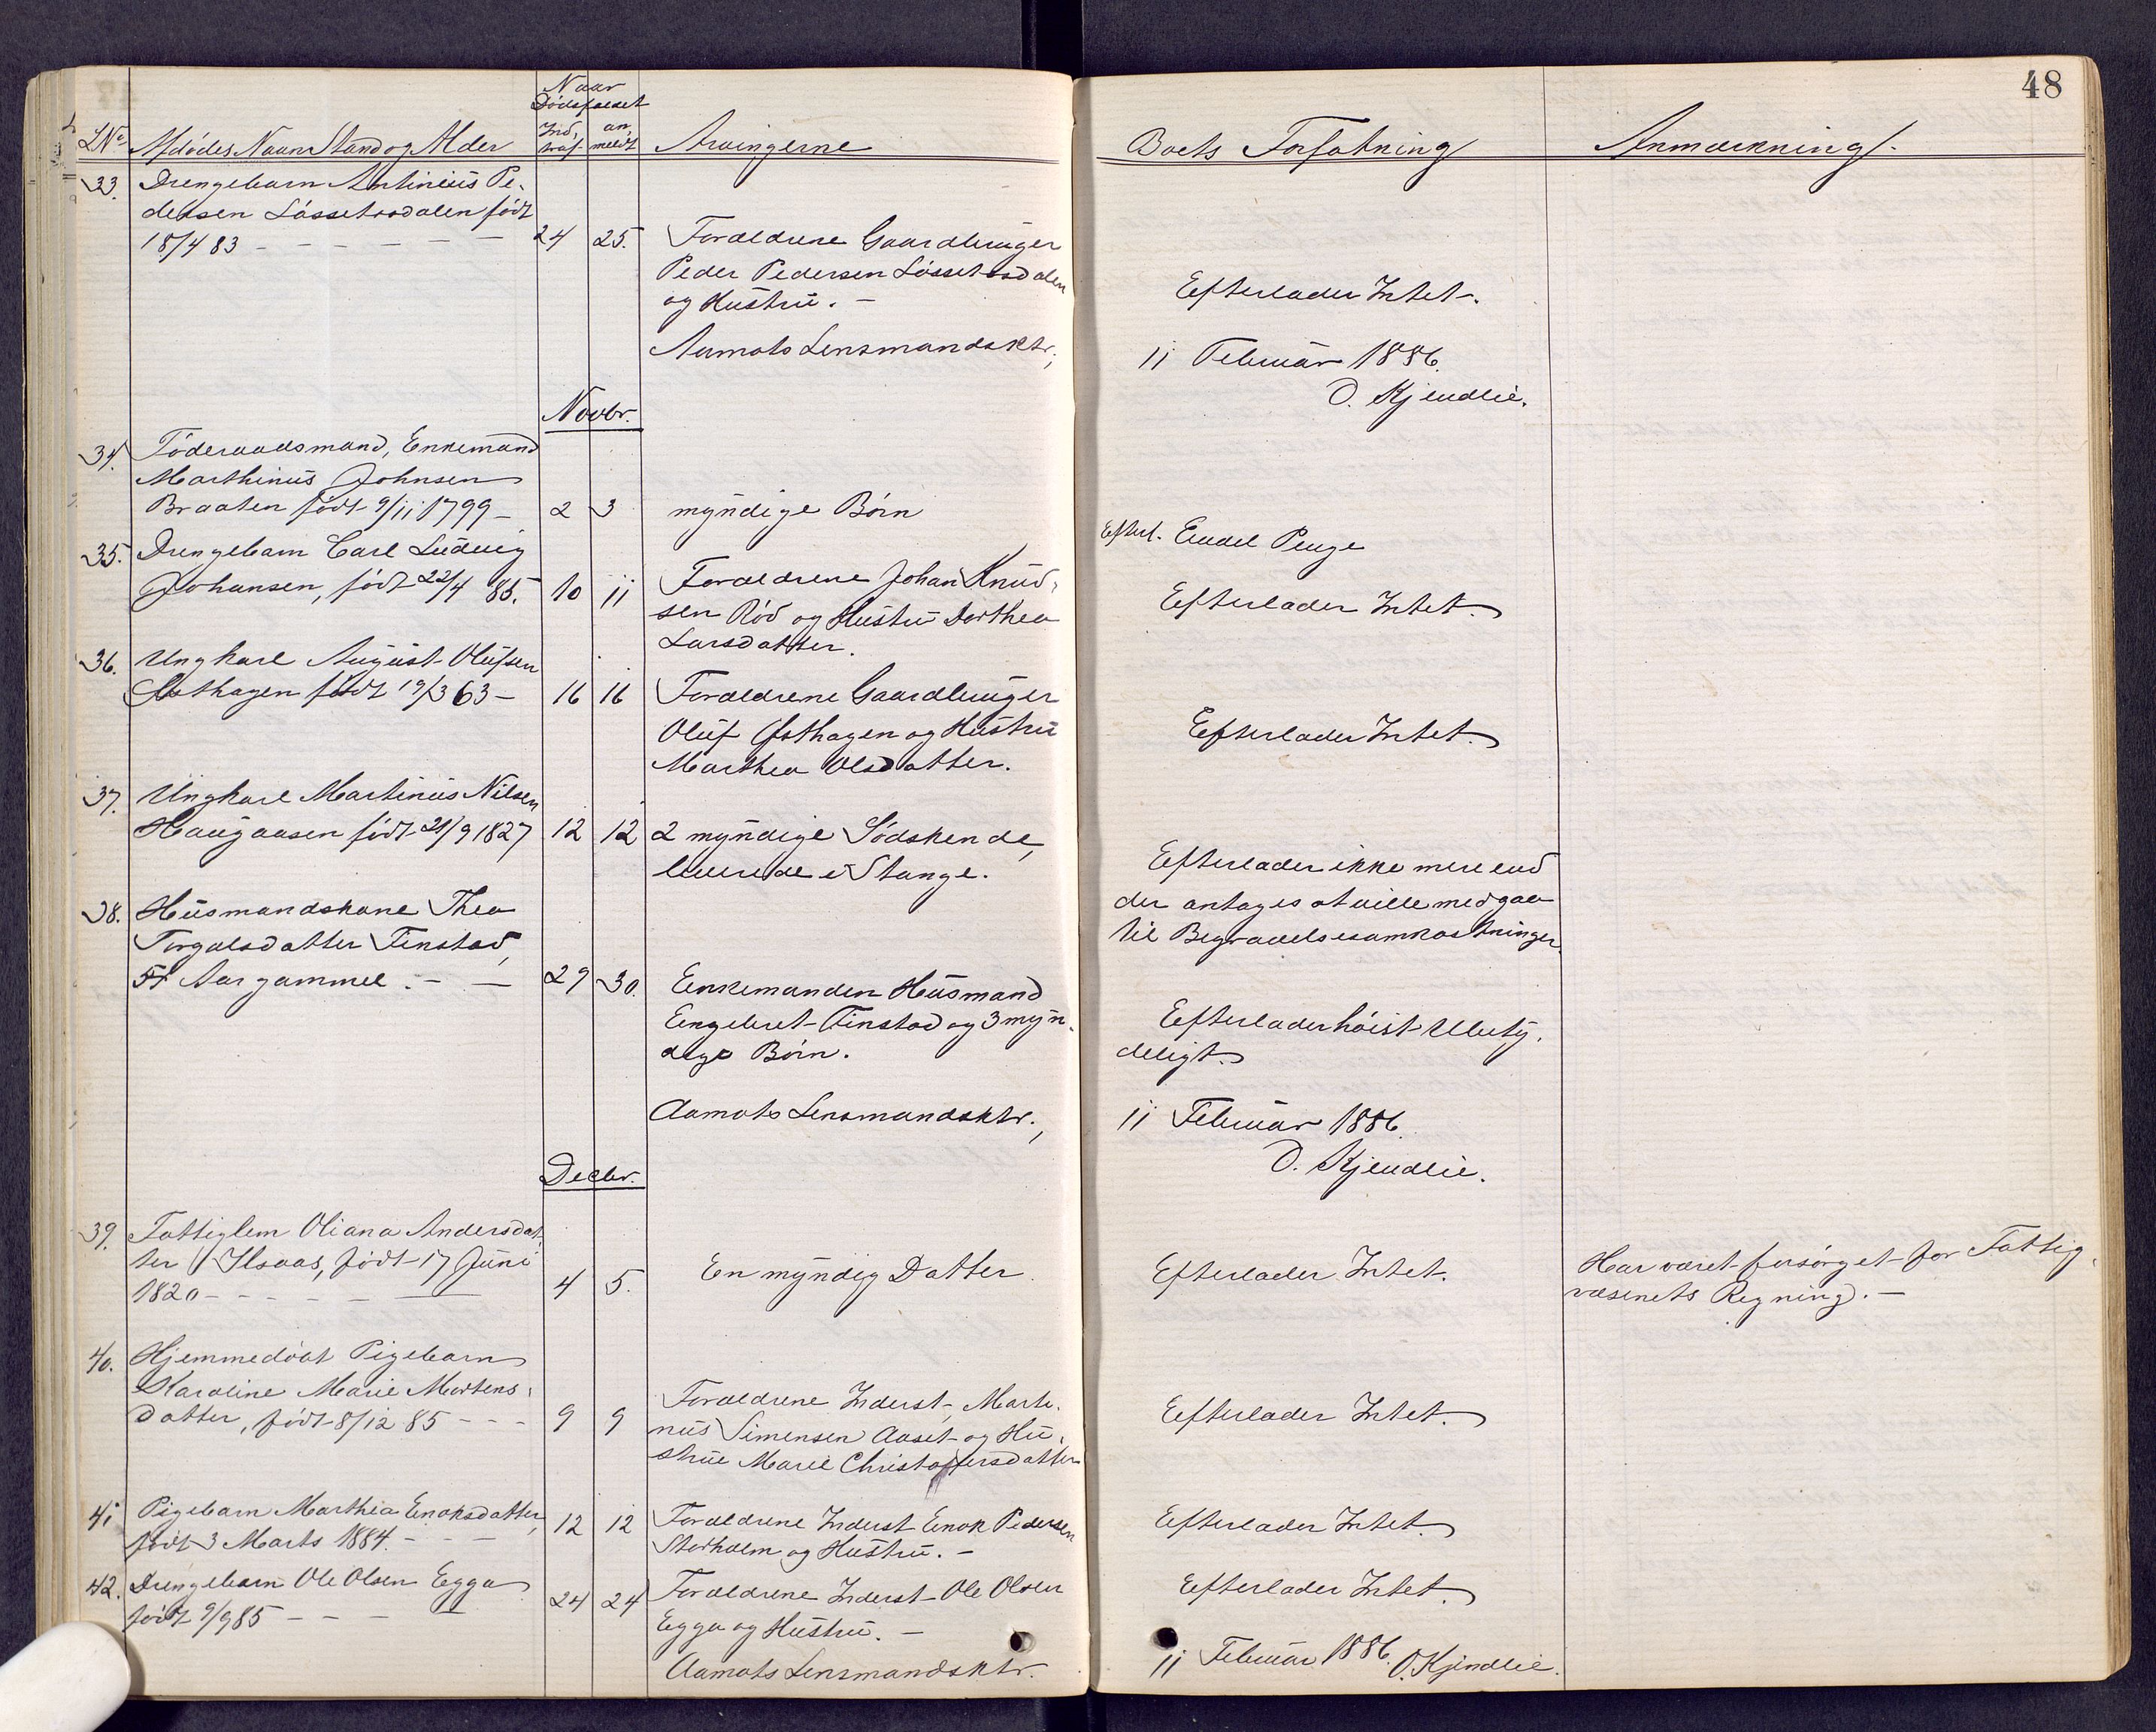 48
Naar
Dødsfaldet
LNo Afdødes Navn Stand og Alder Ind, traf an, meldt Arvingerne Boets Forfatning Anmærkning.
33. Drengebarn Antinius Pe-
dersen Løssetrodalen født
18/4 83 - - - - - - 24 25. Forældrene Gaardbruger
Peder Pedersen Løssetrodalen
og Hustru. -
Efterlader Intet.
Aamots Lensmandsktr., 11 Februar 1886.
O. Kjendlie.
Novbr.
34. Føderaadsmand, Enkemand
Marthinus Johnsen
Braaten født 9/11 1799 - 2 3 myndige Børn
Efterl. Endel Penge
35. Drengebarn Carl Ludvig
Johansen, født 22/4 85. 10 11 Forældrene Johan Knud-
sen Rød og Hustru Dorthea
Larsdatter.
Efterlader Intet.
36. Ungkarl August Olufsen
Østhagen født 19/3 63 - 16 16 Forældrene Gaardbruger
Oluf Østhagen og Hustru
Marthea Olsdatter.
Efterlader Intet.
37. Ungkarl Martinius Nilsen
Haugaasen født 21/9 1827 12 12 2 myndige Sødskende,
levende i Stange.
Efterlader ikke mere end
der antages at ville medgaa
til Begravelsesomkostninger.
38. Husmandskone Thea
Torgalsdatter Finstad,
51 Aar gammel. - - 29 30. Enkemanden Husmand
Engebret Finstad og 3 myn-
dige Børn.
Efterlader høist Ubety-
deligt.
Aamots Lensmandsktr., 11 Februar 1886.
O. Kjendlie.
Decbr.
39. Fattiglem Oliana Andersdat-
ter Ilsaas, født 17 Juni
1820 - - - - - - 4 5. En myndig Datter
Efterlader Intet.
Har været forsørget for Fattig-
væsenets Regning. -
40. Hjemmedøbt Pigebarn
Karoline Marie Martens-
datter, født 8/12 85 - - - 9 9 Forældrene Inderst Marti-
nus Simensen Aaset og Hu-
strue Marie Christoffersdatter
Efterlader Intet.
41 Pigebarn Marthia Enoksdatter,
født 3 Marts 1884. - - - 12 12 Forældrene Inderst Enok Pedersen
Storholm og Hustru. -
Efterlader Intet.
42. Drengebarn Ole Olsen Egga
født 9/9 85 - - - 24 24 Forældrene Inderst Ole Olsen
Egga og Hustru. -
Efterlader Intet.
Aamots Lensmandsktr. 11 Februar 1886. O. Kjendlie.